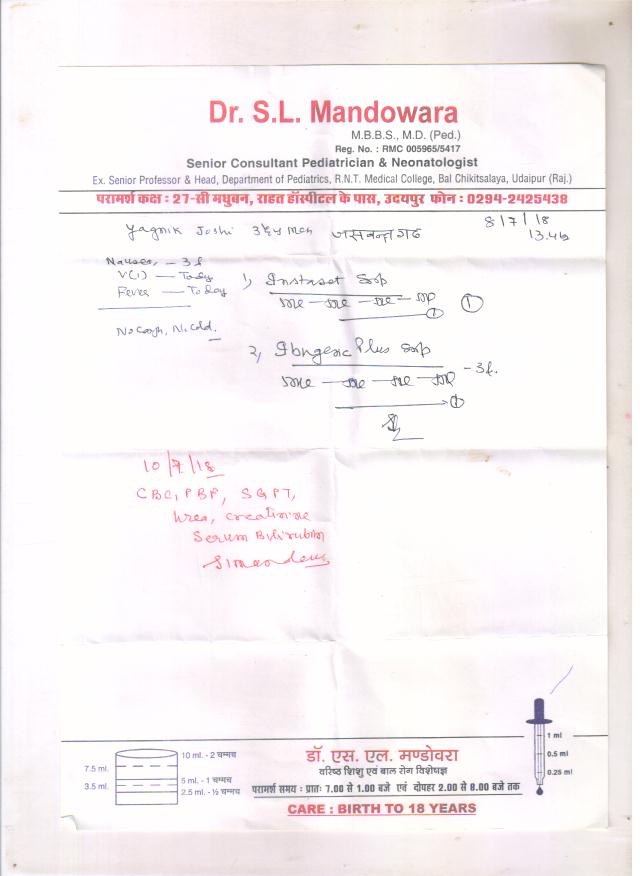 Dr. S.L. Mandowara
M.B.B.S., M.D. (Ped.)
Reg. No. : RMC 005965/5417
Senior Consultant Pediatrician & Neonatologist
Ex. Senior Professor & Head, Department of Pediatrics, R.N.T. Medical College, Bal Chikitsalaya, Udaipur (Raj.)
परामर्श कक्ष : 27-सी मधुबन, राहत हॉस्पीटल के पास, उदयपुर फोन : 0294-2425438
Yagnik Joshi जसवन्तगढ 8/7/18
Nausea, - 3d
V(1) — Today
Fever — Today
No cough, No cold.
1) Instaset Syp
①
2, Ibugesic Plus Syp
- 3d.
①
10/7/18
CBC, PBF, SGPT,
Urea, Creatinine
Serum Bilirubin
10 ml. - 2 चम्मच
7.5 ml.
5 ml. - 1 चम्मच
3.5 ml.
2.5 ml. - ½ चम्मच
डॉ. एस. एल. मण्डोवरा
वरिष्ठ शिशु एवं बाल रोग विशेषज्ञ
परामर्श समय : प्रातः 7.00 से 1.00 बजे एवं दोपहर 2.00 से 8.00 बजे तक
CARE : BIRTH TO 18 YEARS
1 ml
0.5 ml
0.25 ml